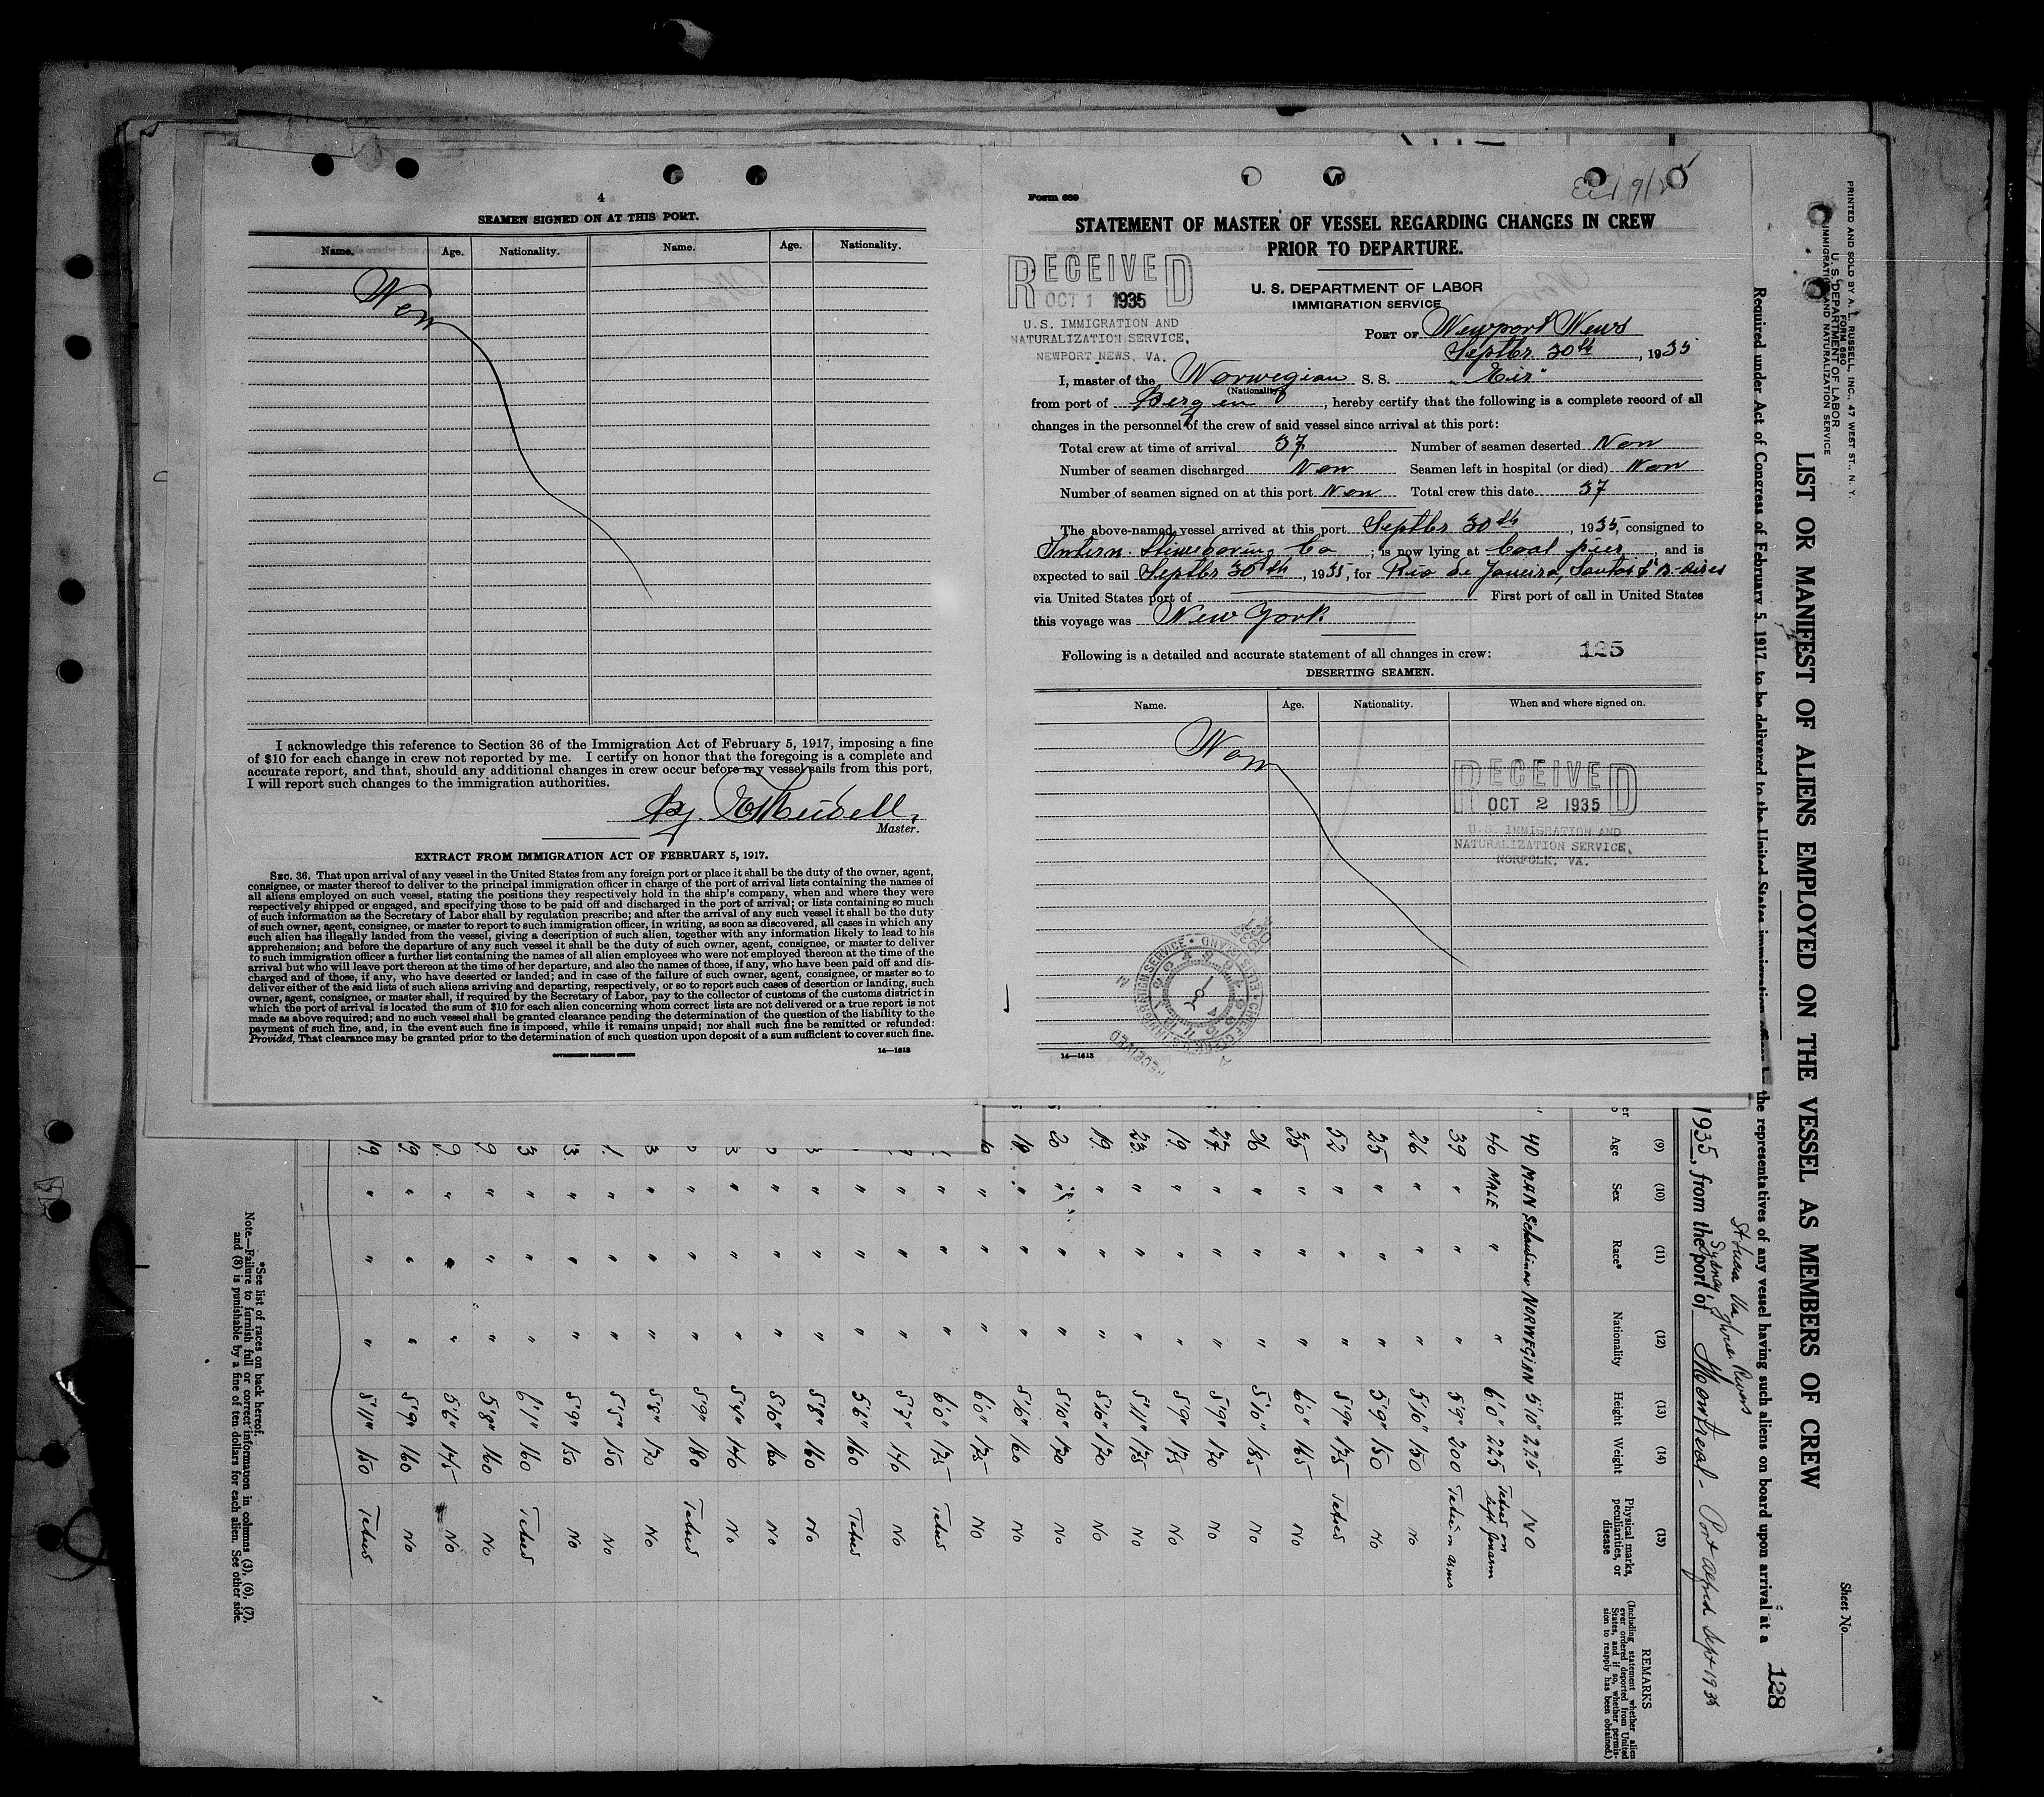 4
SEAMEN SIGNED ON AT THIS PORT.
Name. Age. Nationality. Name. Age. Nationality.
Non
I acknowledge this reference to Section 36 of the Immigration Act of February 5, 1917, imposing a fine
of $10 for each change in crew not reported by me. I certify on honor that the foregoing is a complete and
accurate report, and that, should any additional changes in crew occur before my vessel sails from this port,
I will report such changes to the immigration authorities.
Master.
EXTRACT FROM IMMIGRATION ACT OF FEBRUARY 5, 1917.
SEC. 36. That upon arrival of any vessel in the United States from any foreign port or place it shall be the duty of the owner, agent,
consignee, or master thereof to deliver to the principal immigration officer in charge of the port of arrival lists containing the names of
all aliens employed on such vessel, stating the positions they respectively hold in the ship's company, when and where they were
respectively shipped or engaged, and specifying those to be paid off and discharged in the port of arrival; or lists containing so much
of such information as the Secretary of Labor shall by regulation prescribe; and after the arrival of any such vessel it shall be the duty
of such owner, agent, consignee, or master to report to such immigration officer, in writing, as soon as discovered, all cases in which any
such alien has illegally landed from the vessel, giving a description of such alien, together with any information likely to lead to his
apprehension; and before the departure of any such vessel it shall be the duty of such owner, agent, consignee, or master to deliver
to such immigration officer a further list containing the names of all alien employees who were not employed thereon at the time of the
arrival but who will leave port thereon at the time of her departure, and also the names of those, if any, who have been paid off and dis-
charged and of those, if any, who have deserted or landed; and in case of the failure of such owner, agent, consignee, or master so to
deliver either of the said lists of such aliens arriving and departing, respectively, or so to report such cases of desertion or landing, such
owner, agent, consignee, or master shall, if required by the Secretary of Labor, pay to the collector of customs of the customs district in
which the port of arrival is located the sum of $10 for each alien concerning whom correct lists are not delivered or a true report is not
made as above required; and no such vessel shall be granted clearance pending the determination of the question of the liability to the
payment of such fine, and, in the event such fine is imposed, while it remains unpaid; nor shall such fine be remitted or refunded:
Provided, That clearance may be granted prior to the determination of such question upon deposit of a sum sufficient to cover such fine.
GOVERNMENT PRINTING OFFICE 14—1613
Form 689
STATEMENT OF MASTER OF VESSEL REGARDING CHANGES IN CREW
PRIOR TO DEPARTURE.
RECEIVED
OCT 1 1935
U.S. IMMIGRATION AND
NATURALIZATION SERVICE,
NEWPORT NEWS, VA.
U. S. DEPARTMENT OF LABOR
IMMIGRATION SERVICE
PORT OF Newport News
Septbr 30th, 1935
I, master of the Norwegian S. S. "Eir"
(Nationality)
from port of Bergen, hereby certify that the following is a complete record of all
changes in the personnel of the crew of said vessel since arrival at this port:
Total crew at time of arrival 37 Number of seamen deserted Non
Number of seamen discharged Non Seamen left in hospital (or died) Non
Number of seamen signed on at this port Non Total crew this date 37
The above-named vessel arrived at this port Septbr 30th, 1935, consigned to
Intern. Stiwedoring Co; is now lying at Coal pier, and is
expected to sail Septbr 30th, 1935, for Rio de Janeiro, Santos & B-Aires
via United States port of First port of call in United States
this voyage was New York
Following is a detailed and accurate statement of all changes in crew: 125
DESERTING SEAMEN.
Name. Age. Nationality. When and where signed on.
Non
RECEIVED
OCT 2 1935
U.S. IMMIGRATION AND
NATURALIZATION SERVICE,
NORFOLK, VA.
RECEIVED
14—1613
PRINTED AND SOLD BY A. L. RUSSELL, INC., 47 WEST ST., N. Y.
FORM 680
U. S. DEPARTMENT OF LABOR
IMMIGRATION AND NATURALIZATION SERVICE
Sheet No.
LIST OR MANIFEST OF ALIENS EMPLOYED ON THE VESSEL AS MEMBERS OF CREW
128
Required under Act of Congress of February 5, 1917, to be delivered to the United States immigration the representatives of any vessel having such aliens on board upon arrival at a
Sydney Rivers
1935, from the port of Montreal - Port Sept 1935
(9) (10) (11) (12) (13) (14) (13)
Age Sex Race* Nationality Height Weight Physical marks, peculiarities, or disease
REMARKS
(Including statement whether alien
ever ordered deported from United
States, and if so, whether permis-
sion to reapply has been obtained.)
40 MAN NORWEGIAN 5'10" 225 NO
40 MALE " " 6'0" 225 Tatued on left forearm
39 " " " 5'9" 200 arms
26 " " " 5'10" 150 No
25 " " " 5'9" 150 No
52 " " " 5'9" 175 Tatued
35 " " " 6'0" 165 No
26 " " " 5'10" 185 No
27 " " " 5'9" 170 No
19 " " " 5'9" 175 No
23 " " " 5'11" 175 No
19 " " " 5'10" 170 No
20 " " " 5'10" 170 No
" " " 5'10" 160 No
" " " 6'0" 175 No
" " " 6'0" 175 Tatued
" " " 5'7" 140 No
" " " 5'6" 160 Tatued
" " " 5'8" 160 No
" " " 5'10" 160 No
" " " 5'4" 140 No
" " " 5'9" 180 Tatued
" " " 5'8" 170 No
" " " 5'5" 150 No
" " " 5'9" 150 No
" " " 6'1" 160 Tatued
" " " 5'8" 160 No
" " " 5'6" 145 No
" " " 5'9" 160 No
" " " 5'11" 150 Tatued
*See list of races on back hereof.
Note.—Failure to furnish full or correct information in columns (3), (6), (7),
and (8) is punishable by a fine of ten dollars for each alien. See other side.